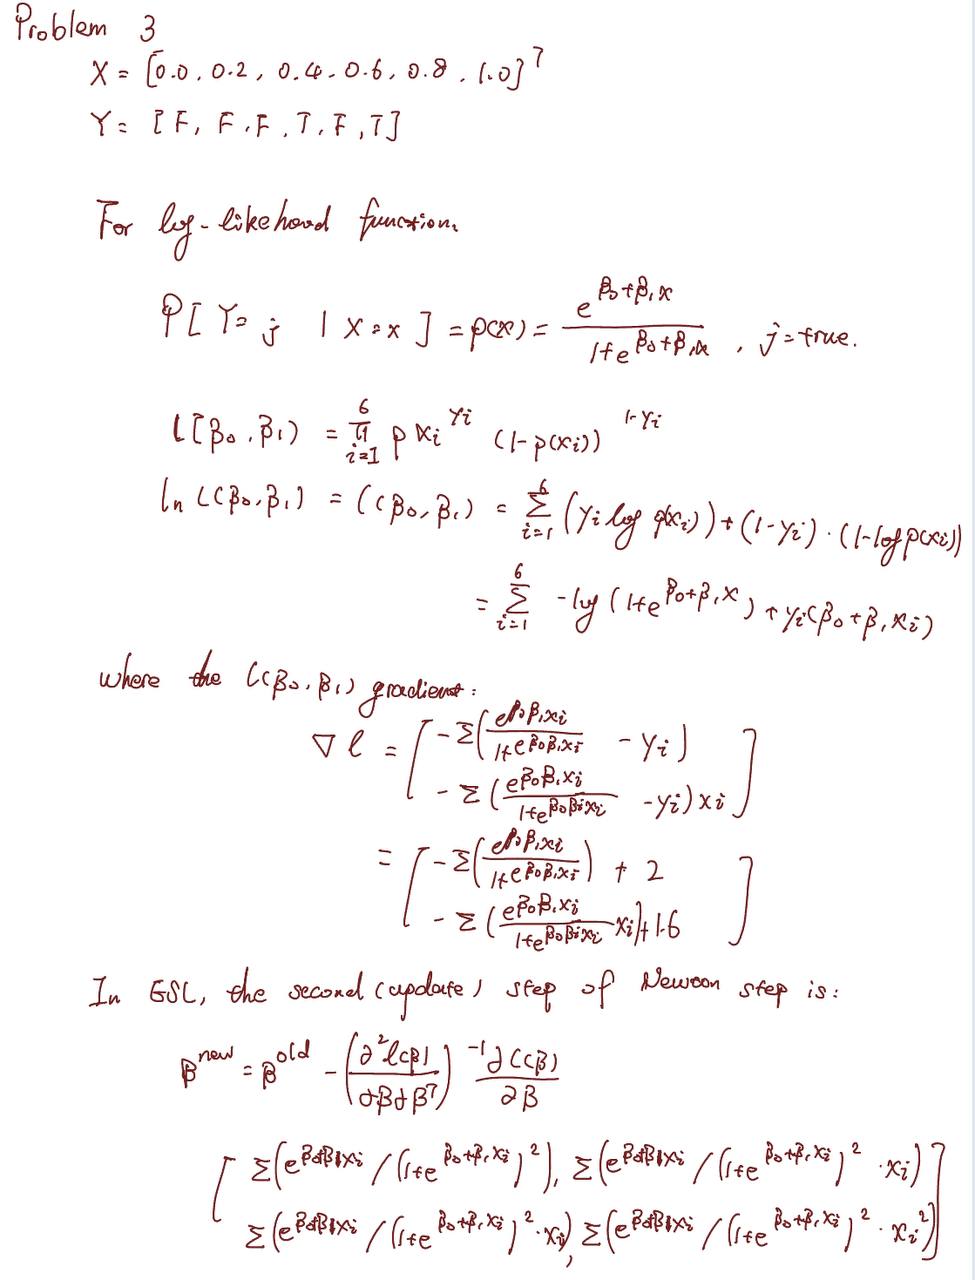 Problem 3
X = [0.0, 0.2, 0.4, 0.6, 0.8, 1.0]^T
Y = [F, F, F, T, F, T]
For log-likehood function.
P[Y = j | X = x] = p(x) = e^{β₀+β₁x} / 1+e^{β₀+β₁x} , j = true.
L(β₀, β₁) = ∏_{i=1}^{6} p x_i^{y_i} (1-p(x_i))^{1-y_i}
ln L(β₀, β₁) = l(β₀, β₁) = Σ_{i=1}^{6} (y_i log p(x_i)) + (1-y_i) · (1-log p(x_i))
= Σ_{i=1}^{6} -log(1+e^{β₀+β₁x}) + y_i(β₀+β₁x_i)
where the l(β₀, β₁) gradient:
∇l = [ -Σ(e^{β₀β₁x_i} / 1+e^{β₀β₁x_i} - y_i)
-Σ(e^{β₀β₁x_i} / 1+e^{β₀β₁x_i} - y_i) x_i ]
= [ -Σ(e^{β₀β₁x_i} / 1+e^{β₀β₁x_i}) + 2
-Σ(e^{β₀β₁x_i} / 1+e^{β₀β₁x_i} x_i) + 1.6 ]
In ESL, the second (update) step of Newton step is:
β^{new} = β^{old} - (∂²l(β) / ∂β∂β^T)^{-1} ∂l(β) / ∂β
[ Σ(e^{β₀+β₁x_i} / (1+e^{β₀+β₁x_i})²), Σ(e^{β₀+β₁x_i} / (1+e^{β₀+β₁x_i})² · x_i)
Σ(e^{β₀+β₁x_i} / (1+e^{β₀+β₁x_i})² · x_i), Σ(e^{β₀+β₁x_i} / (1+e^{β₀+β₁x_i})² · x_i²) ]